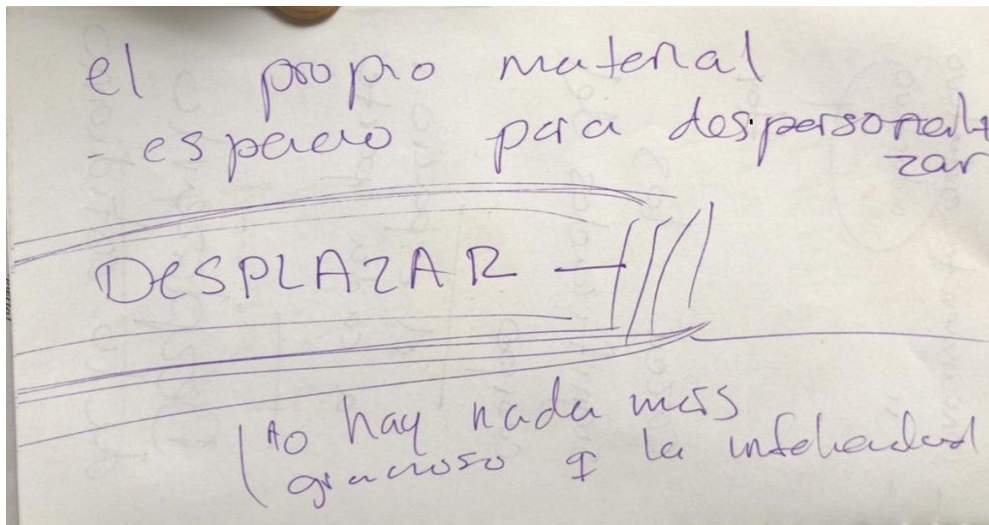 el propio material
- espacio para despersonali
zar
DESPLAZAR -
(No hay nada más
gracioso q la infelicidad